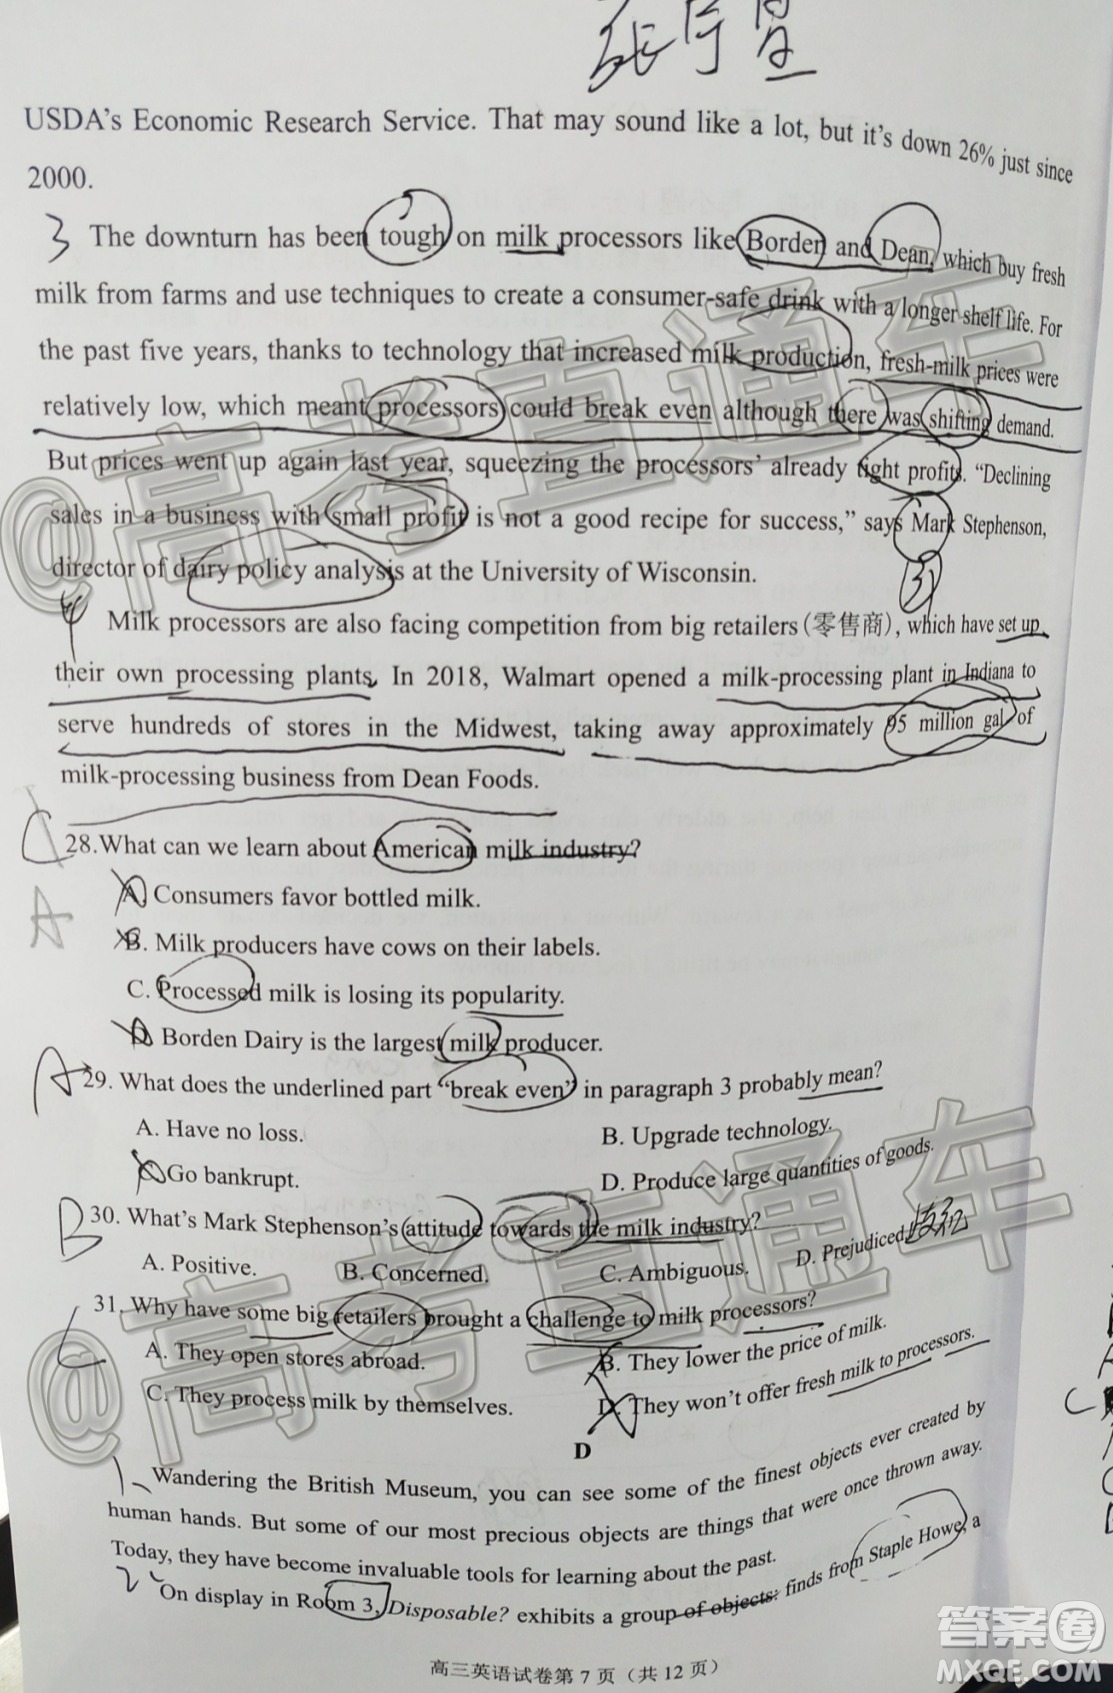 USDA's Economic Research Service. That may sound like a lot, but it's down 26% just since
2000.
3 The downturn has been tough on milk processors like Borden and Dean, which buy fresh
milk from farms and use techniques to create a consumer-safe drink with a longer shelf life. For
the past five years, thanks to technology that increased milk production, fresh-milk prices were
relatively low, which meant processors could break even although there was shifting demand.
But prices went up again last year, squeezing the processors' already tight profits. "Declining
sales in a business with small profit is not a good recipe for success," says Mark Stephenson,
director of dairy policy analysis at the University of Wisconsin.
31
4 Milk processors are also facing competition from big retailers(零售商), which have set up
their own processing plants. In 2018, Walmart opened a milk-processing plant in Indiana to
serve hundreds of stores in the Midwest, taking away approximately 95 million gal of
milk-processing business from Dean Foods.
C 28.What can we learn about American milk industry?
A
A. Consumers favor bottled milk.
B. Milk producers have cows on their labels.
C. Processed milk is losing its popularity.
D. Borden Dairy is the largest milk producer.
A 29. What does the underlined part "break even" in paragraph 3 probably mean?
A. Have no loss. B. Upgrade technology.
C. Go bankrupt. D. Produce large quantities of goods.
B 30. What's Mark Stephenson's attitude towards the milk industry?
A. Positive. B. Concerned. C. Ambiguous. D. Prejudiced.
C 31. Why have some big retailers brought a challenge to milk processors?
A. They open stores abroad. B. They lower the price of milk.
C. They process milk by themselves. D. They won't offer fresh milk to processors.
D
1 Wandering the British Museum, you can see some of the finest objects ever created by
human hands. But some of our most precious objects are things that were once thrown away.
Today, they have become invaluable tools for learning about the past.
2 On display in Room 3, Disposable? exhibits a group of objects: finds from Staple Howe, a
高三英语试卷第 7 页（共 12 页）
@高考直通车
@高考直通车
答案圈
MXQE.COM